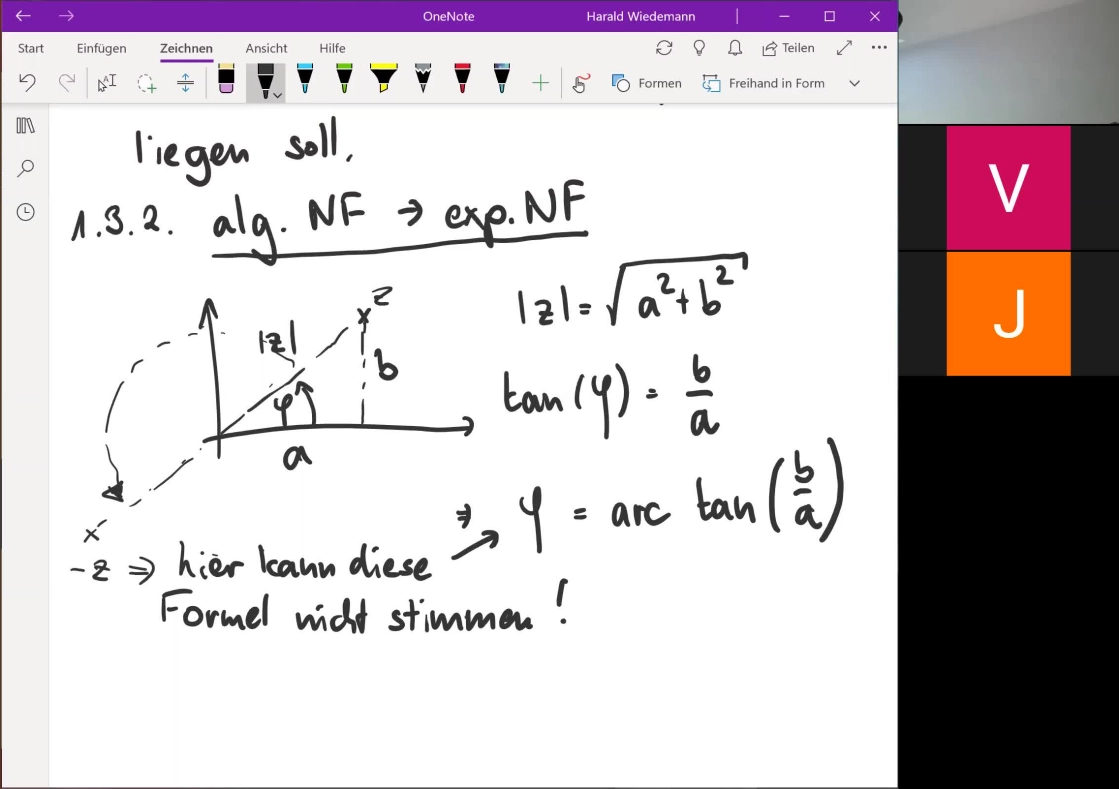 OneNote
Harald Wiedemann
Start Einfügen Zeichnen Ansicht Hilfe
Teilen
Formen
Freihand in Form
liegen soll.
1.3.2. alg. NF → exp. NF
z
|z|
b
φ
a
|z| = √(a²+b²)
tan(φ) = b/a
⇒ φ = arc tan(b/a)
x
-z ⇒ hier kann diese
Formel nicht stimmen !
V
J